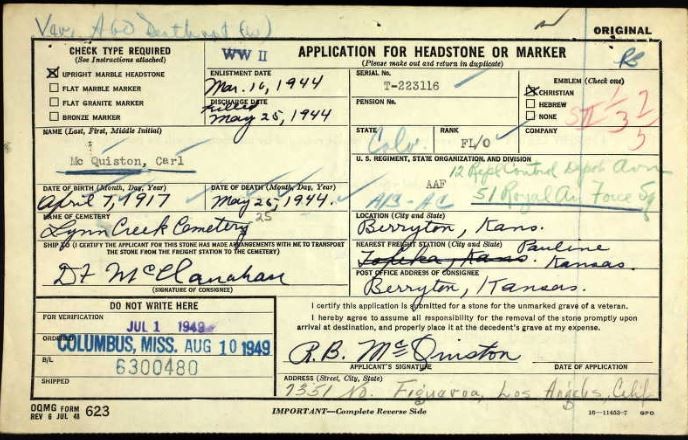 ORIGINAL
CHECK TYPE REQUIRED
(See Instructions attached)
☒ UPRIGHT MARBLE HEADSTONE
☐ FLAT MARBLE MARKER
☐ FLAT GRANITE MARKER
☐ BRONZE MARKER
WW II
APPLICATION FOR HEADSTONE OR MARKER
(Please make out and return in duplicate)
ENLISTMENT DATE
Mar. 16, 1944
DISCHARGE DATE
Killed
May 25, 1944
SERIAL No.
T-223116
PENSION No.
EMBLEM (Check one)
☒ CHRISTIAN
☐ HEBREW
☐ NONE
STATE
Colo.
RANK
FL/O
COMPANY
NAME (Last, First, Middle Initial)
Mc Quiston, Carl
U. S. REGIMENT, STATE ORGANIZATION, AND DIVISION
12 Repl Control Depot Avn
AAF
51 Royal Air Force Sq
DATE OF BIRTH (Month, Day, Year)
April 7, 1917
DATE OF DEATH (Month, Day, Year)
May 25, 1944.
25
NAME OF CEMETERY
Lynn Creek Cemetery
LOCATION (City and State)
Berryton, Kans.
SHIP TO (I CERTIFY THE APPLICANT FOR THIS STONE HAS MADE ARRANGEMENTS WITH ME TO TRANSPORT THE STONE FROM THE FREIGHT STATION TO THE CEMETERY)
D F McClanahan
(SIGNATURE OF CONSIGNEE)
NEAREST FREIGHT STATION (City and State)
Pauline
Topeka, Kans. Kansas.
POST OFFICE ADDRESS OF CONSIGNEE
Berryton, Kansas.
DO NOT WRITE HERE
FOR VERIFICATION
JUL 1 1949
ORDERED
COLUMBUS, MISS. AUG 10 1949
B/L
6300480
SHIPPED
I certify this application is submitted for a stone for the unmarked grave of a veteran.
I hereby agree to assume all responsibility for the removal of the stone promptly upon
arrival at destination, and properly place it at the decedent's grave at my expense.
R.B. McQuiston
APPLICANT'S SIGNATURE
DATE OF APPLICATION
ADDRESS (Street, City, State)
7351 No. Figueroa, Los Angeles, Calif
OQMG FORM
REV 6 JUL 48
623
IMPORTANT—Complete Reverse Side
16—11453-7 GPO